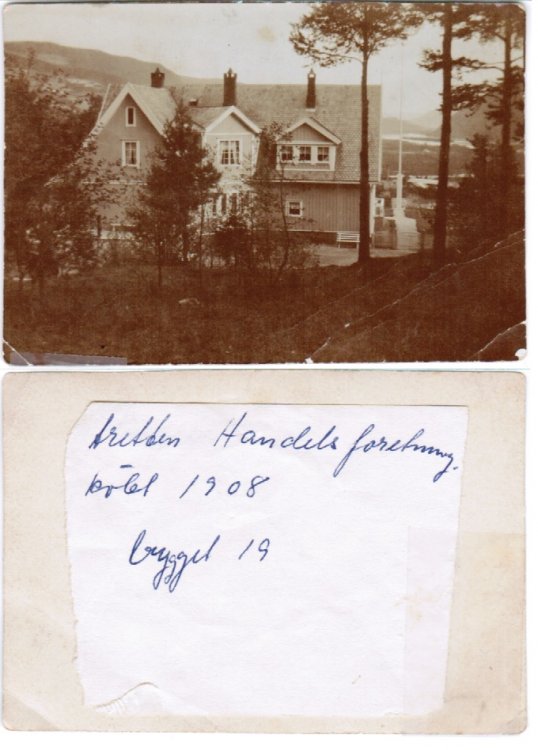 tretten Handelsforetning.
köbt 1908
bygget 19